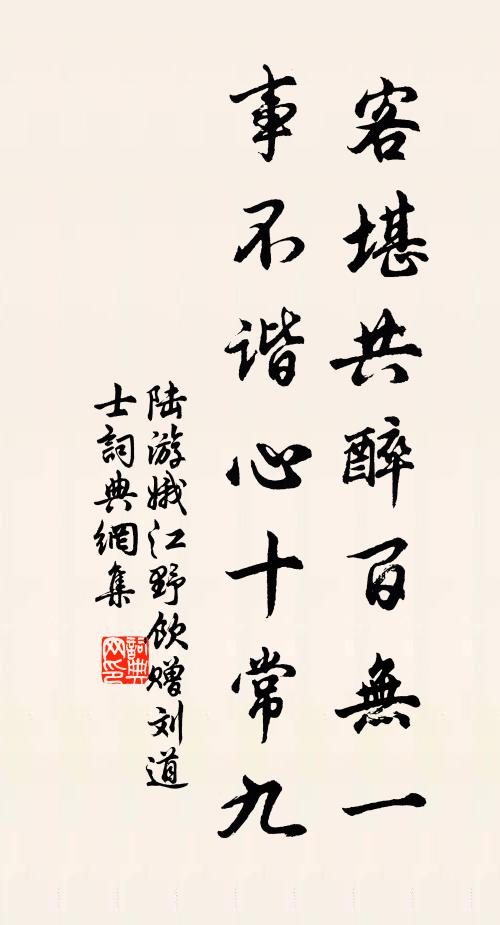 客堪共醉百無一
事不谐心十常九
陆游娥江野饮赠刘道
士詞典網集
詞典
网印